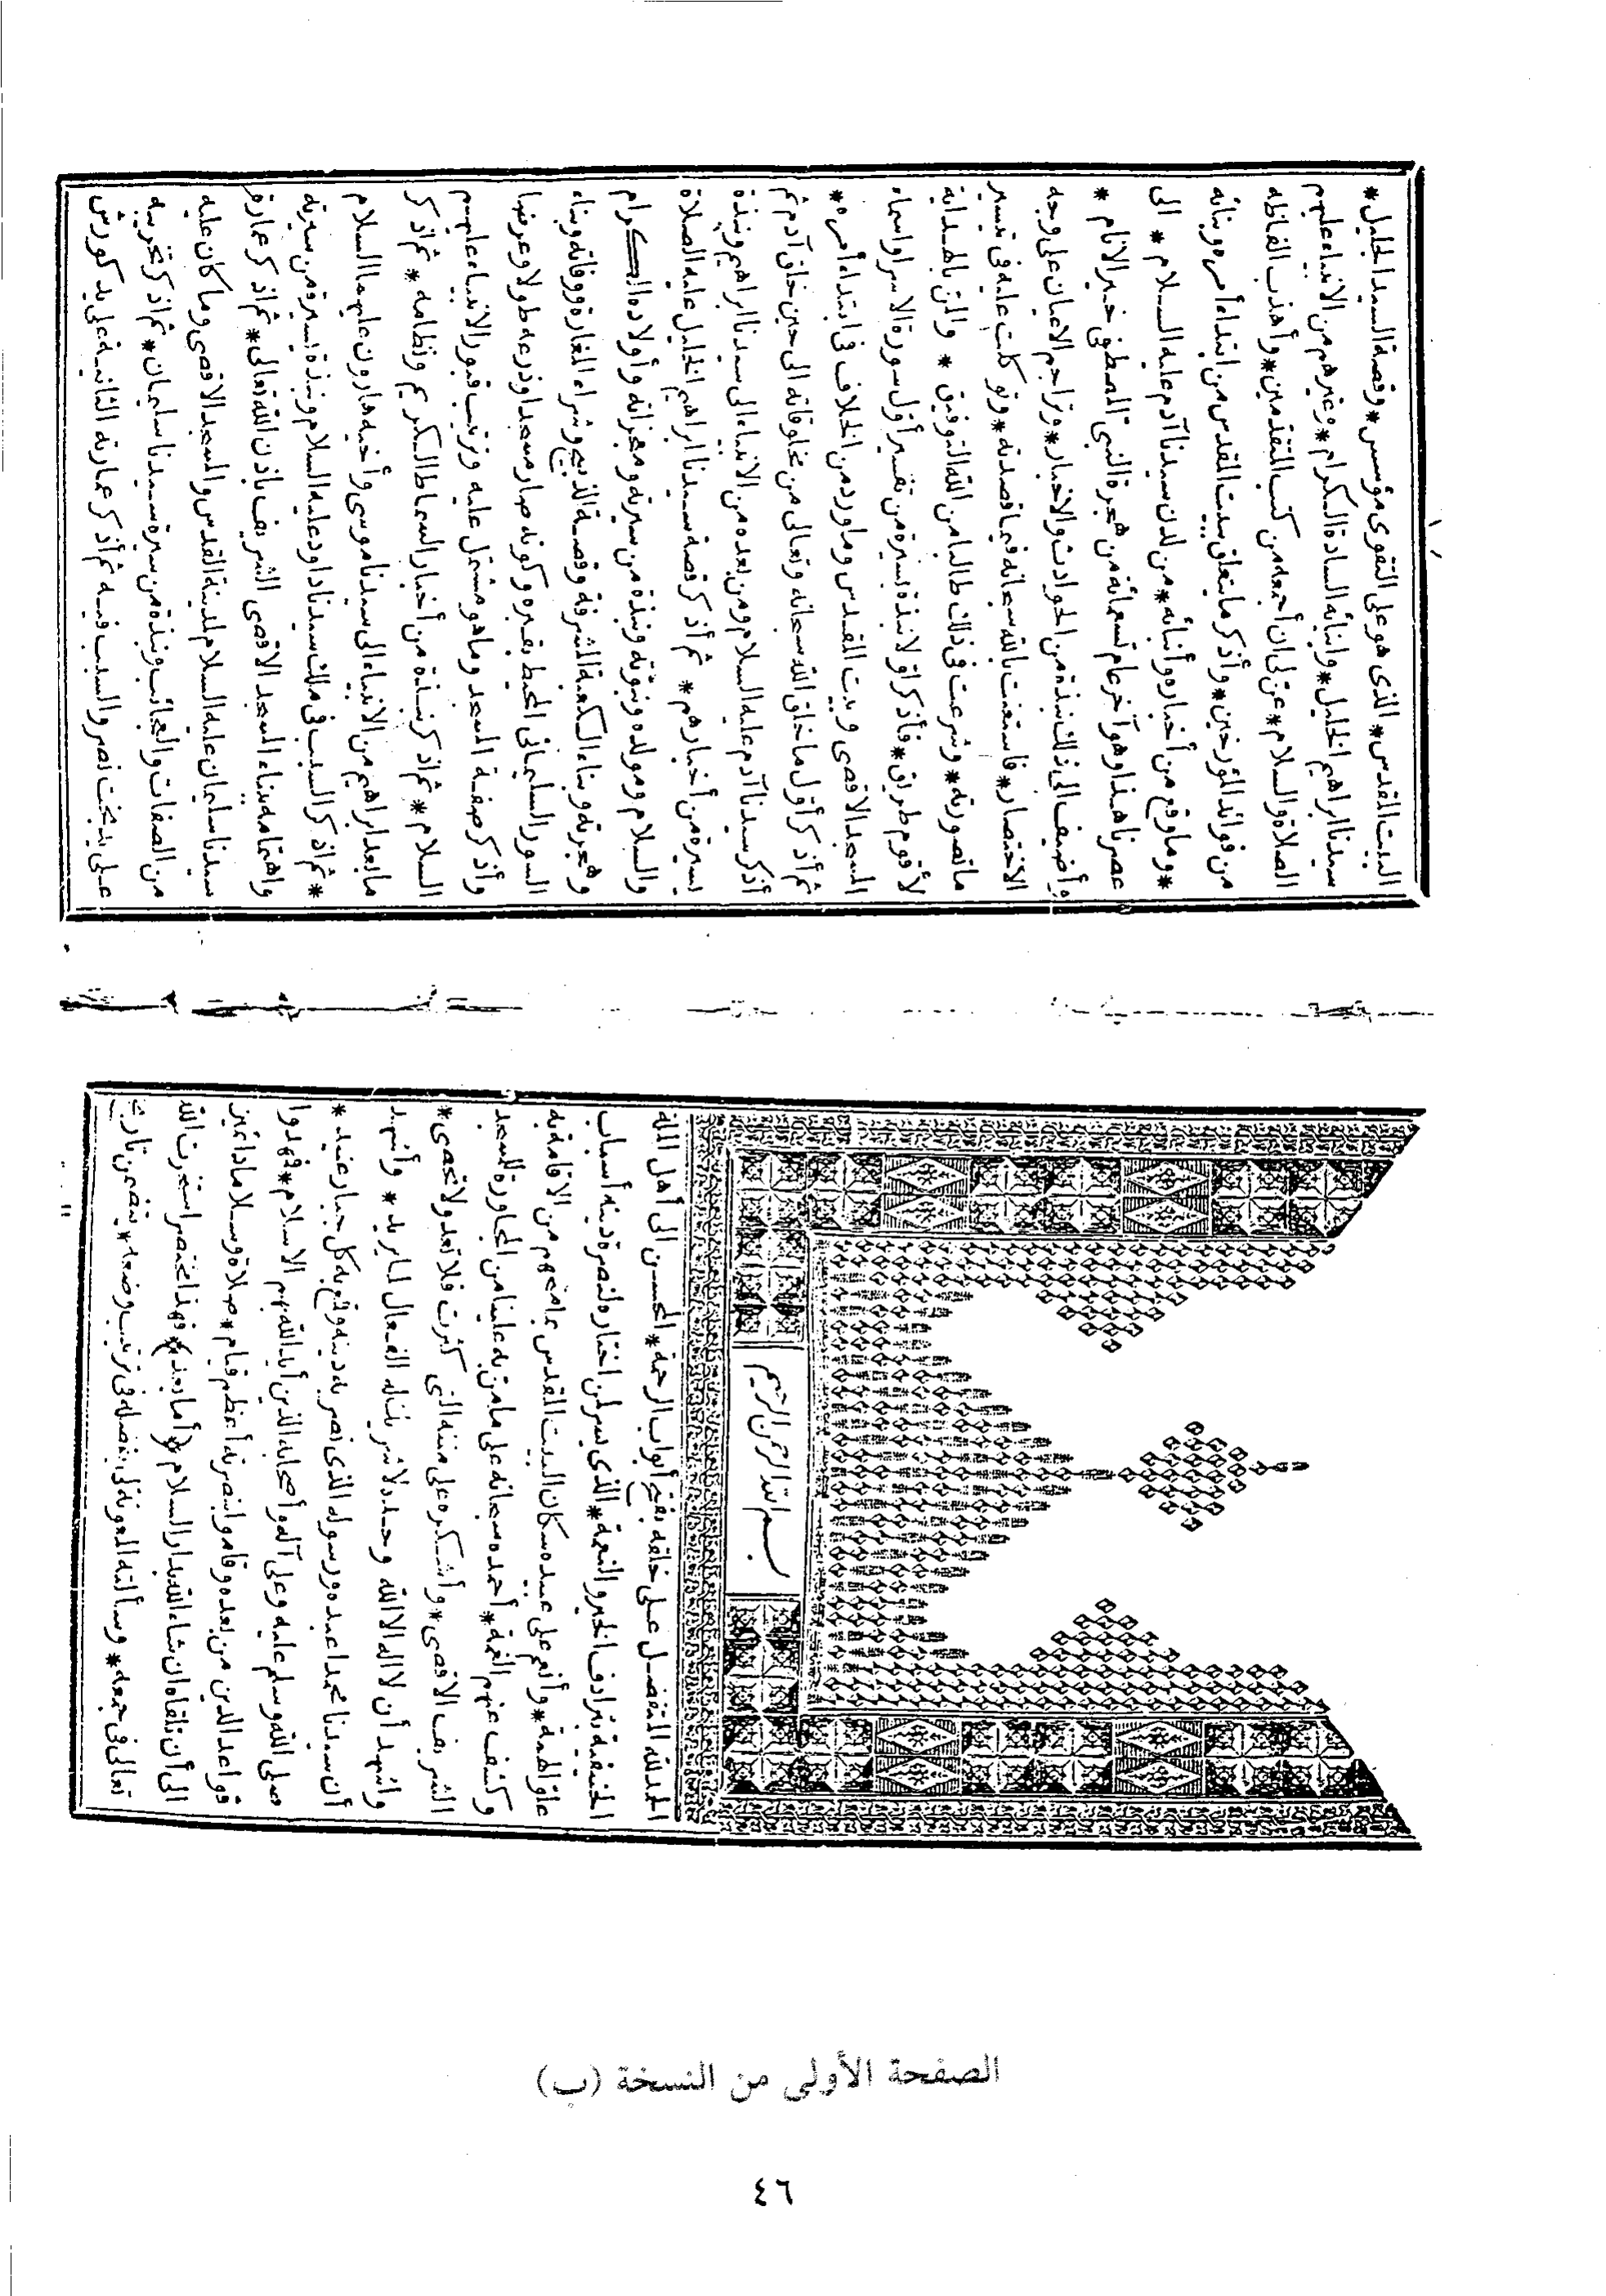 بسم الله الرحمن الرحيم
الحمد لله المتفضل على خلقه بفتح أبواب الرحمة * المحسن الى أهل الملة
الحنيفية بترادف الخير والنعمة * الذى يسر لمن اختاره لنصرة دينه أسباب
علو الهمة * وأنعم على عبيده سكان البيت المقدس بما منحهم من الاقامة به
وكشف عنهم الغمة * أحمده سبحانه على ما من به علينا من المجاورة للمسجد
الشريف الاقصى * وأشكره على مننه التى كثرت فلا تعد ولا تحصى *
وأشهد أن لا اله الا الله وحده لا شريك له الفعال لما يريد * وأشهد
أن سيدنا محمدا عبده ورسوله الذى نصر به دينه وقمع به كل جبار عنيد *
صلى الله وسلم عليه وعلى آله وأصحابه الذين أيد الله بهم الاسلام * فمهدوا
قواعد الدين من بعده وقاموا بنصرته أعظم قيام * صلاة وسلاما دائمين
الى أن نلقاه ان شاء الله بدار السلام (أما بعد) فهذا مختصر استخرت الله
تعالى فى جمعه * وسألته المعونة لى بفضله فى ترتيبه ووضعه * يتضمن تاريخ
البيت المقدس * الذى هو على التقوى مؤسس * وقصة السيد الجليل *
سيدنا ابراهيم الخليل * وأبنائه السادة الكرام * وغيرهم من الانبياء عليهم
الصلاة والسلام * عن لى ان أجمعه من كتب المتقدمين * وأهذب ألفاظه
من فوائد المؤرخين * وأذكر ما يتعلق ببيت المقدس من ابتداء أمره وبنائه
* وما وقع من أخباره وأنبائه * من لدن سيدنا آدم عليه السلام * الى
عصرنا هذا وهو آخر عام تسعمائة من هجرة النبى المصطفى خير الانام *
وأضيف الى ذلك نبذة من الحوادث والاخبار * وتراجم الاعيان على وجه
الاختصار * فاستعنت بالله سبحانه فيما قصدته * وتوكلت عليه فى تيسير
ما تصورته * وشرعت فى ذلك طالبا من الله التوفيق * والمن بالهداية
لأقوم طريق * فأذكر اولا نبذة يسيرة من تفسير أول سورة الاسرا واسماء
المسجد الاقصى وبيت المقدس وما ورد من الخلاف فى ابتداء أمره *
ثم أذكر أول ما خلق الله سبحانه وتعالى من مخلوقاته الى حين خلق آدم ثم
أذكر سيدنا آدم عليه السلام ومن بعده من الانبياء الى سيدنا ابراهيم ونبذة
يسيرة من أخبارهم * ثم أذكر قصة سيدنا ابراهيم الخليل عليه الصلاة
والسلام ومولده ونبوته ونبذة من سيرته ومعجزاته وأولاده الكرام
وهجرته وبناء الكعبة المشرفة وقصة الذبيح وشراء المغارة ووفاته وبناء
السور السليمانى المحيط بقبره وكونه صار مسجدا وذرعه طولا وعرضا
وأذكر صفة المسجد وما هو مشتمل عليه وترتيب قبور الانبياء عليهم
السلام * ثم اذكر نبذة من أخبار السماط الكريم ونظامه * ثم اذكر
ما بعد ابراهيم من الانبياء الى سيدنا موسى وأخيه هارون عليهما السلام
* ثم اذكر السبب فى ملك سيدنا داود عليه السلام ونبذة يسيرة من سيرته
واهتمامه ببناء المسجد الاقصى الشريف باذن الله تعالى * ثم اذكر عمارة
سيدنا سليمان عليه السلام لمدينة القدس والمسجد الاقصى وما كان عليه
من الصفات والعجائب ونبذة من سيرة سيدنا سليمان * ثم اذكر تخريبه
على يد بخت نصر والسبب فيه ثم أذكر عمارته الثانية على يد كورش
الصفحة الأولى من النسخة (ب)
٤٦